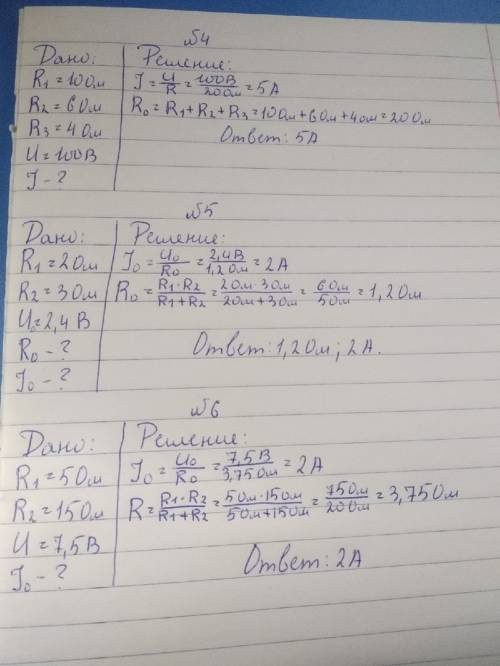 №4
Дано:
R1 = 10 Ом
R2 = 6 Ом
R3 = 4 Ом
U = 100 В
I - ?
Решение:
I = U/R = 100В/20 Ом = 5 А
R0 = R1 + R2 + R3 = 10 Ом + 6 Ом + 4 Ом = 20 Ом
Ответ: 5 А
№5
Дано:
R1 = 2 Ом
R2 = 3 Ом
U0 = 2,4 В
R0 - ?
I0 - ?
Решение:
I0 = U0/R0 = 2,4 В/1,2 Ом = 2 А
R0 = R1·R2/R1+R2 = 2 Ом · 3 Ом/2 Ом + 3 Ом = 6 Ом/5 Ом = 1,2 Ом
Ответ: 1,2 Ом; 2 А.
№6
Дано:
R1 = 5 Ом
R2 = 15 Ом
U = 7,5 В
I0 - ?
Решение:
I0 = U0/R0 = 7,5 В/3,75 Ом = 2 А
R = R1·R2/R1+R2 = 5 Ом · 15 Ом/5 Ом + 15 Ом = 75 Ом/20 Ом = 3,75 Ом
Ответ: 2 А